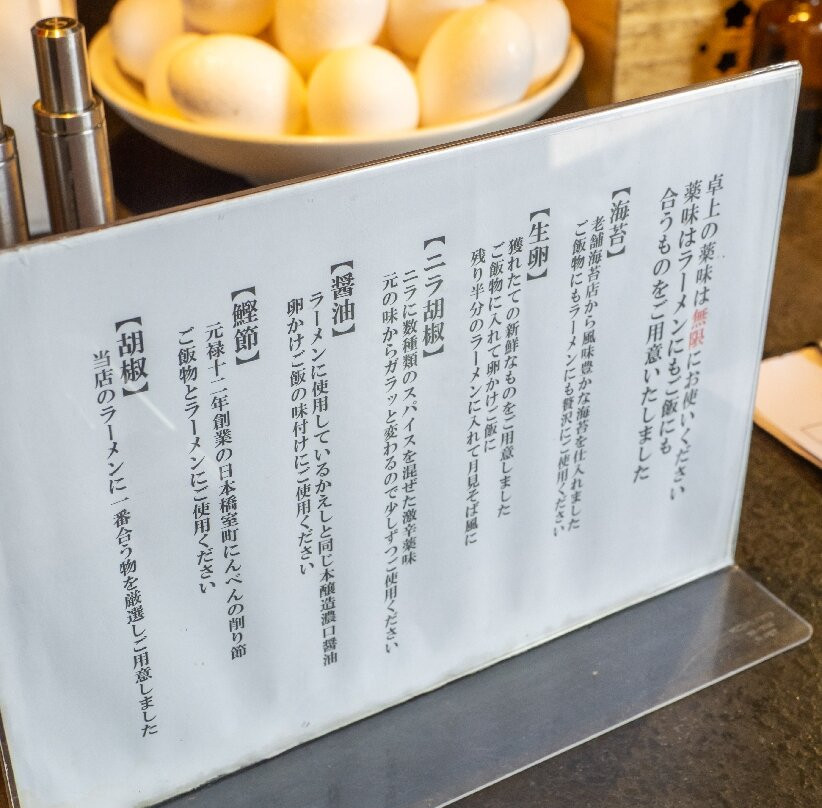 卓上の薬味は無限にお使いください
薬味はラーメンにもご飯にも
合うものをご用意いたしました
【海苔】
老舗海苔店から風味豊かな海苔を仕入れました
ご飯物にもラーメンにも贅沢にご使用ください
【生卵】
獲れたての新鮮なものをご用意しました
ご飯物に入れて卵かけご飯に
残り半分のラーメンに入れて月見そば風に
【ニラ胡椒】
ニラに数種類のスパイスを混ぜた激辛薬味
元の味からガラッと変わるので少しずつご使用ください
【醤油】
ラーメンに使用しているかえしと同じ本醸造濃口醤油
卵かけご飯の味付けにご使用ください
【鰹節】
元禄十二年創業の日本橋室町にんべんの削り節
ご飯物とラーメンにご使用ください
【胡椒】
当店のラーメンに一番合う物を厳選しご用意しました